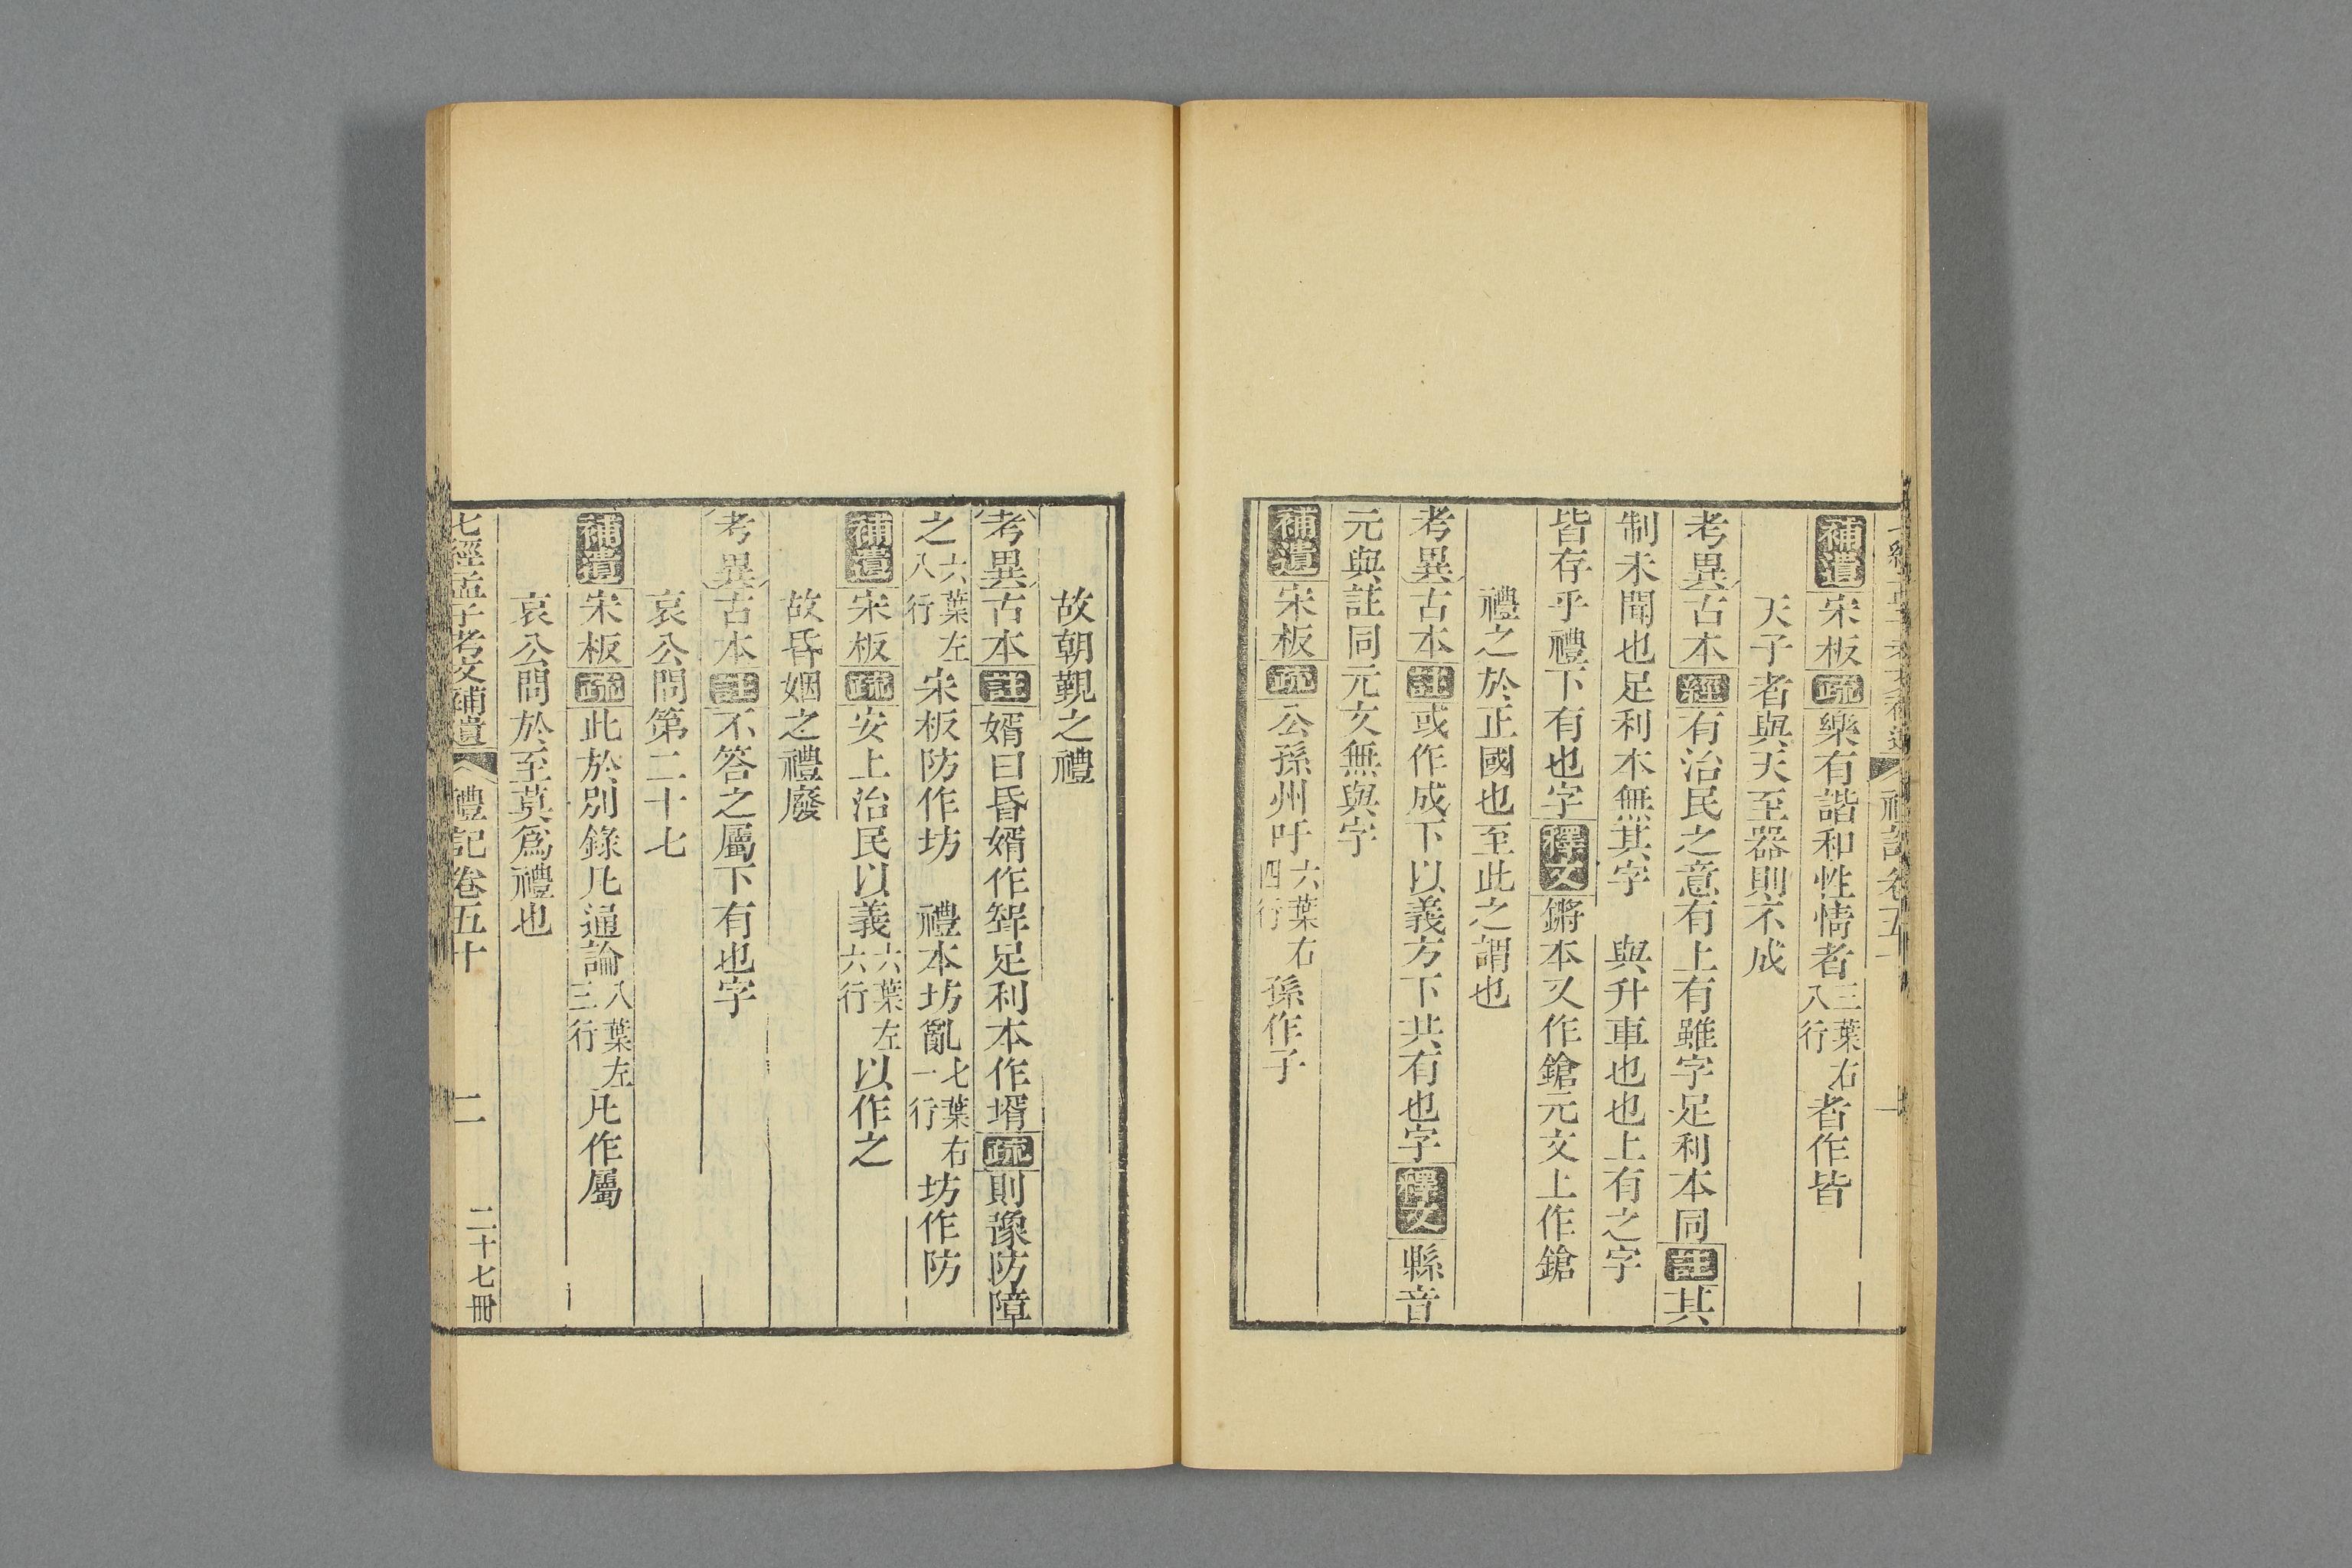 補遺宋板疏樂有諧和性情者三葉右八行者作皆
天子者與天至器則不成
考異古本經有治民之意有上有雖字足利本同註其
制未聞也足利本無其字　與升車也也上有之字
皆存乎禮下有也字釋文鏘本又作鎗元文上作鎗
禮之於正國也至此之謂也
考異古本註或作成下以義方下共有也字釋文縣音
元與註同元文無與字
補遺宋板疏公孫州吁六葉右四行孫作子
故朝覲之禮
考異古本註婿曰昏婿作聟足利本作壻疏則豫防障
之六葉左八行宋板防作坊　禮本坊亂七葉右一行坊作防
補遺宋板疏安上治民以義六葉左六行以作之
故昏姻之禮廢
考異古本註不答之屬下有也字
哀公問第二十七
補遺宋板疏此於別錄凡通論八葉左三行凡作屬
哀公問於至莫爲禮也
七經孟子考文補遺　禮記卷五十　二　二十七冊